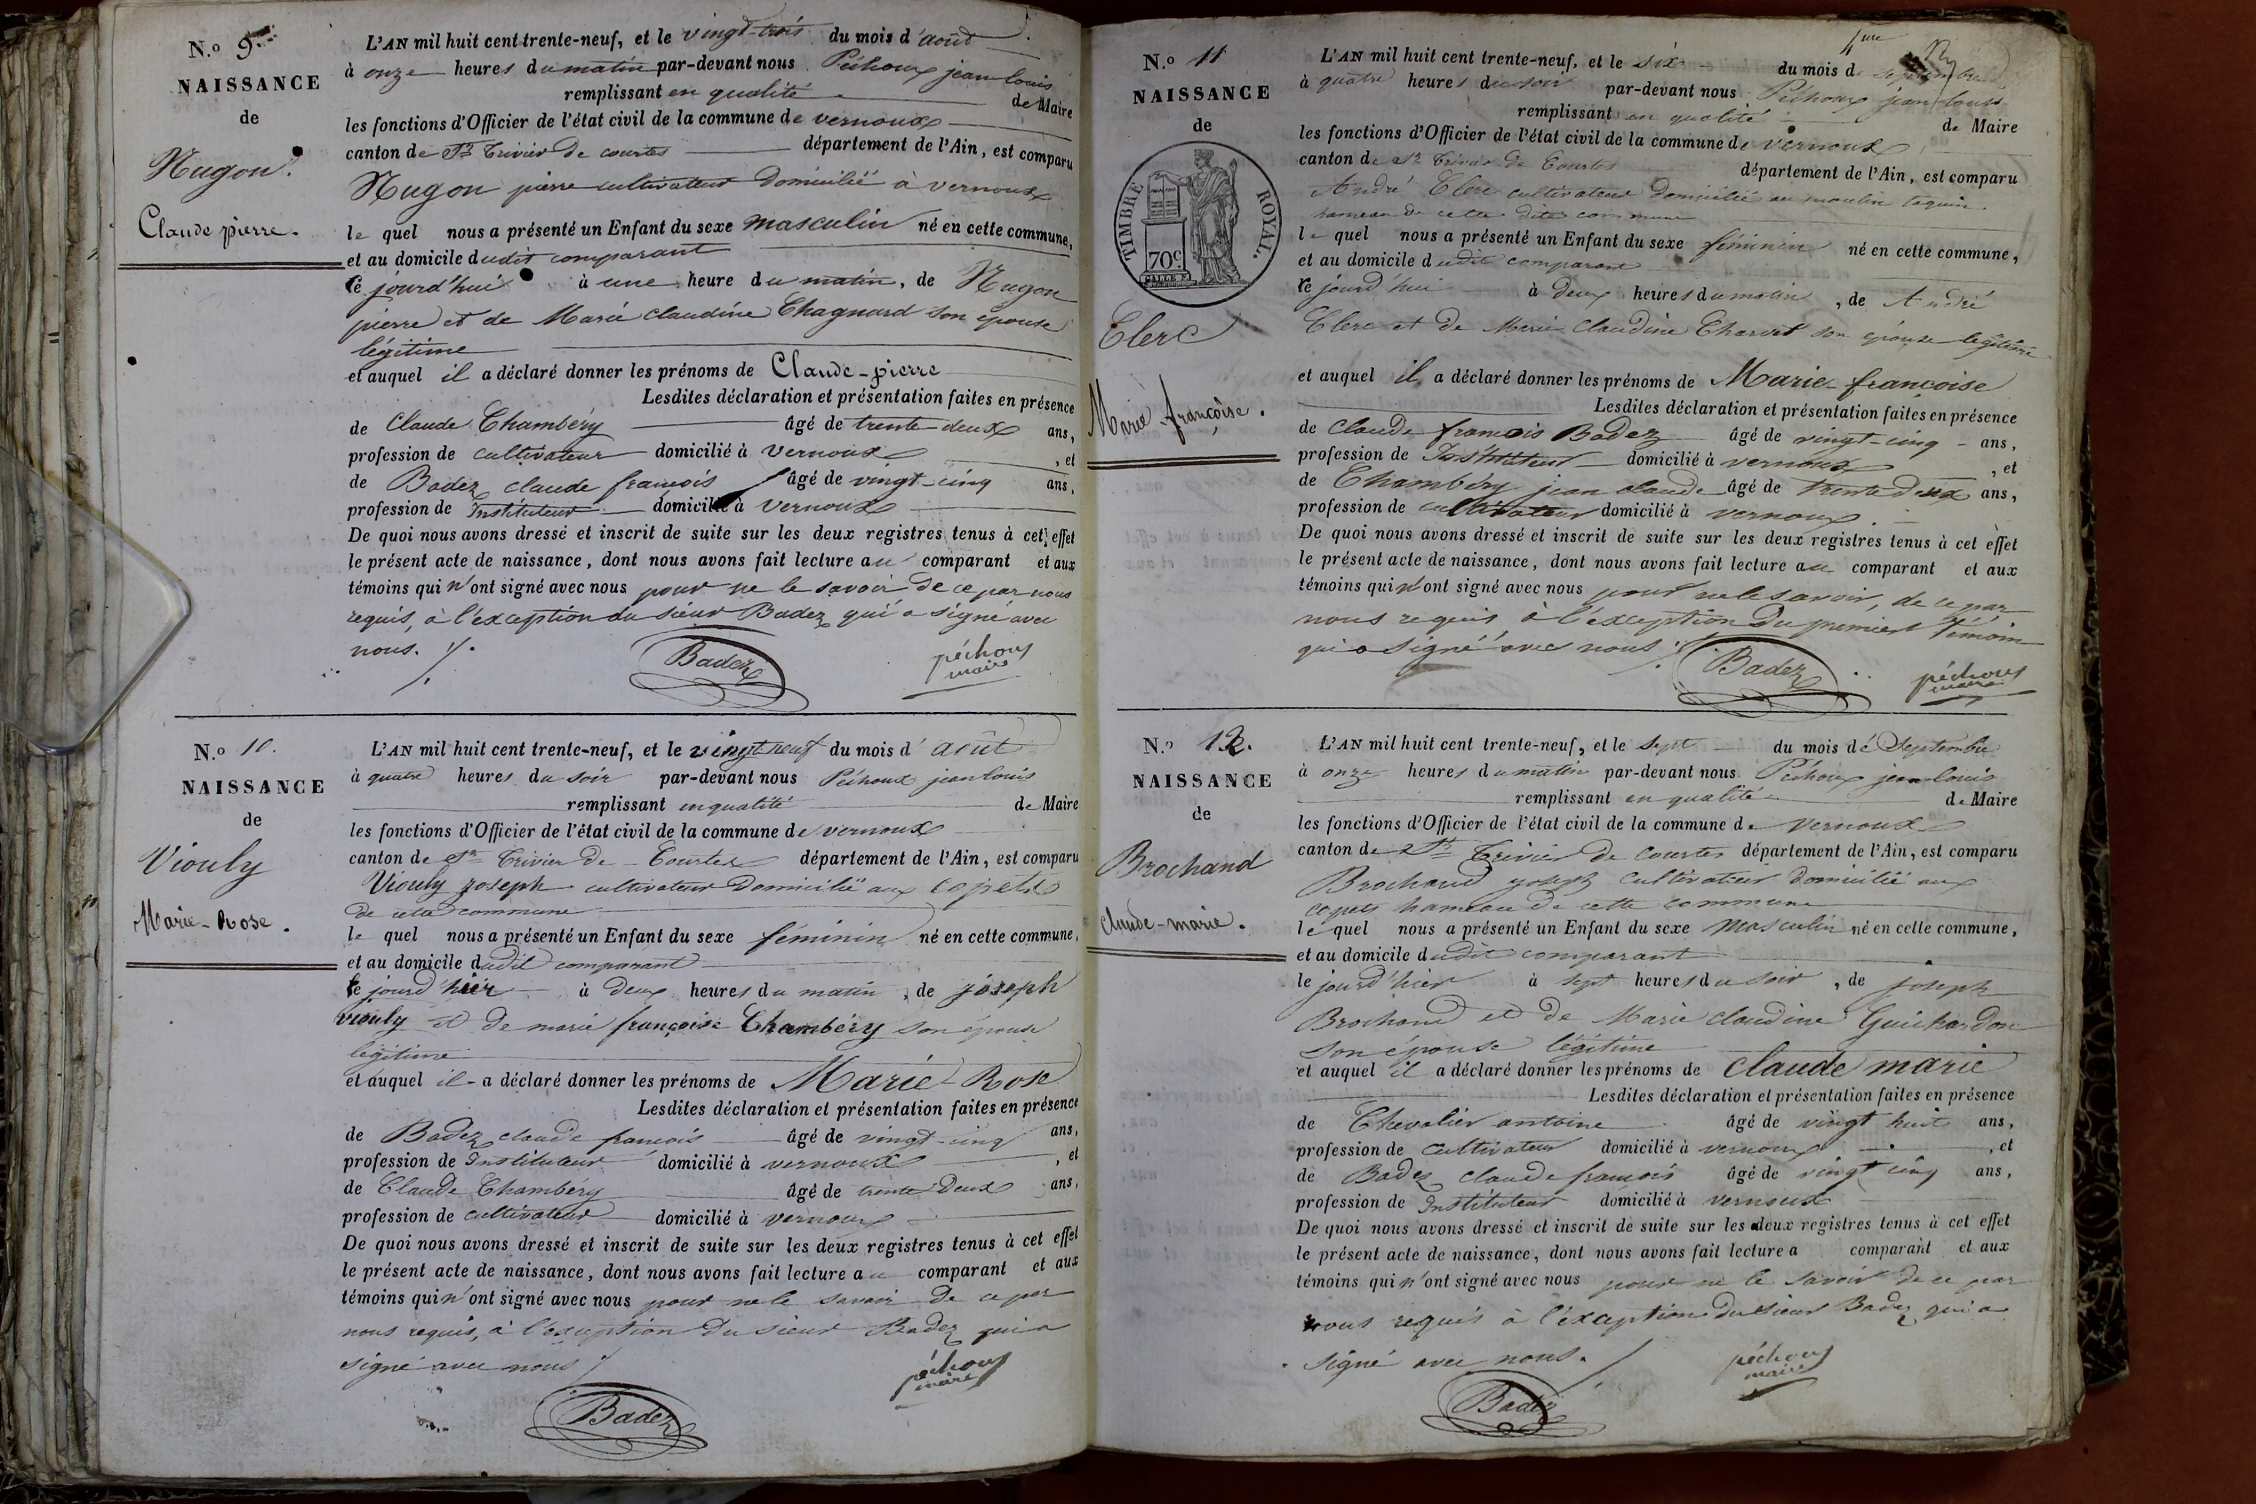 N.o 9.
NAISSANCE
de
Nugon.
Claude pierre.
L'AN mil huit cent trente-neuf, et le vingt-trois du mois d'août
à onze heures du matin par-devant nous Péchoux jean louis
remplissant en qualité de Maire
les fonctions d'Officier de l'état civil de la commune de vernoux
canton de St Trivier de courtes département de l'Ain, est comparu
Nugon pierre cultivateur domicilié à vernoux
le quel nous a présenté un Enfant du sexe masculin né en cette commune,
et au domicile dudit comparant
ce jourd'hui à une heure du matin, de Nugon
pierre et de Marie claudine Chagnard son épouse
légitime
et auquel il a déclaré donner les prénoms de Claude-pierre
Lesdites déclaration et présentation faites en présence
de Claude Chambéry âgé de trente deux ans,
profession de cultivateur domicilié à vernoux , et
de Badez claude françois âgé de vingt-cinq ans,
profession de Instituteur domicilié à vernoux
De quoi nous avons dressé et inscrit de suite sur les deux registres tenus à cet effet
le présent acte de naissance, dont nous avons fait lecture au comparant et aux
témoins qui n'ont signé avec nous pour ne le savoir de ce par nous
requis, à l'exception du sieur Badez qui a signé avec
nous.
Badez
péchoux
maire
N.o 10.
NAISSANCE
de
Viouly
Marie-Rose.
L'AN mil huit cent trente-neuf, et le vingt-neuf du mois d'août
à quatre heures du soir par-devant nous Péchoux jean louis
remplissant en qualité de Maire
les fonctions d'Officier de l'état civil de la commune de vernoux
canton de St Trivier de Courtes département de l'Ain, est comparu
Viouly joseph cultivateur domicilié aux
de cette commune
le quel nous a présenté un Enfant du sexe féminin né en cette commune,
et au domicile dudit comparant
le jourd'hier à deux heures du matin, de joseph
viouly et de marie françoise Chambéry son épouse
légitime
et auquel il a déclaré donner les prénoms de Marie-Rose
Lesdites déclaration et présentation faites en présence
de Badez claude françois âgé de vingt-cinq ans,
profession de Instituteur domicilié à vernoux , et
de Claude Chambéry âgé de trente deux ans,
profession de cultivateur domicilié à vernoux
De quoi nous avons dressé et inscrit de suite sur les deux registres tenus à cet effet
le présent acte de naissance, dont nous avons fait lecture au comparant et aux
témoins qui n'ont signé avec nous pour ne le savoir de ce par
nous requis, à l'exception du sieur Badez qui a
signé avec nous
péchoux
maire
Badez
N.o 11
NAISSANCE
de
TIMBRE ROYAL.
70c
Clerc
Marie-françoise.
L'AN mil huit cent trente-neuf, et le six du mois de septembre
à quatre heures du soir par-devant nous Péchoux jean louis
remplissant en qualité de Maire
les fonctions d'Officier de l'état civil de la commune de vernoux
canton de St Trivier de Courtes département de l'Ain, est comparu
André Clerc cultivateur domicilié au moulin
hameau de cette dite commune
le quel nous a présenté un Enfant du sexe féminin né en cette commune,
et au domicile dudit comparant
ce jourd'hui à deux heures du matin, de André
Clerc et de Marie Claudine Charvet son épouse légitime
et auquel il a déclaré donner les prénoms de Marie françoise
Lesdites déclaration et présentation faites en présence
de Claude françois Badez âgé de vingt-cinq ans,
profession de Instituteur domicilié à vernoux , et
de Chambéry jean claude âgé de trente deux ans,
profession de cultivateur domicilié à vernoux
De quoi nous avons dressé et inscrit de suite sur les deux registres tenus à cet effet
le présent acte de naissance, dont nous avons fait lecture au comparant et aux
témoins qui n'ont signé avec nous pour ne le savoir, de ce par
nous requis à l'exception du premier témoin
qui a signé avec nous
Badez
péchoux
maire
N.o 12.
NAISSANCE
de
Brochand
claude-marie.
L'AN mil huit cent trente-neuf, et le sept du mois de Septembre
à onze heures du matin par-devant nous Péchoux jean louis
remplissant en qualité de Maire
les fonctions d'Officier de l'état civil de la commune de vernoux
canton de St Trivier de courtes département de l'Ain, est comparu
Brochand joseph cultivateur domicilié aux
hameau de cette commune
le quel nous a présenté un Enfant du sexe masculin né en cette commune,
et au domicile dudit comparant
le jourd'hier à sept heures du soir, de joseph
Brochand et de Marie claudine Guichardon
son épouse légitime
et auquel il a déclaré donner les prénoms de claude marie
Lesdites déclaration et présentation faites en présence
de Chevalier antoine âgé de vingt huit ans,
profession de cultivateur domicilié à vernoux , et
de Badez claude françois âgé de vingt cinq ans,
profession de Instituteur domicilié à vernoux
De quoi nous avons dressé et inscrit de suite sur les deux registres tenus à cet effet
le présent acte de naissance, dont nous avons fait lecture a comparant et aux
témoins qui n'ont signé avec nous pour ne le savoir de ce par
nous requis à l'exception du sieur Badez qui a
signé avec nous.
péchoux
maire
Badez